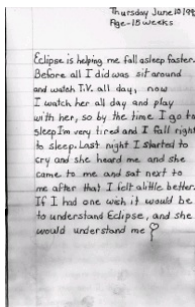 Thursday June 10/99
Age-15 weeks
Eclipse is helping me fall asleep faster.
Before all I did was sit around
and watch T.V. all day, now
I watch her all day and play
with her, so by the time I go to
sleep I'm very tired and I fall right
to sleep. Last night I started to
cry and she heard me and she
came to me and sat next to
me after that I felt alittle better.
If I had one wish it would be
to understand Eclipse, and she
would understand me